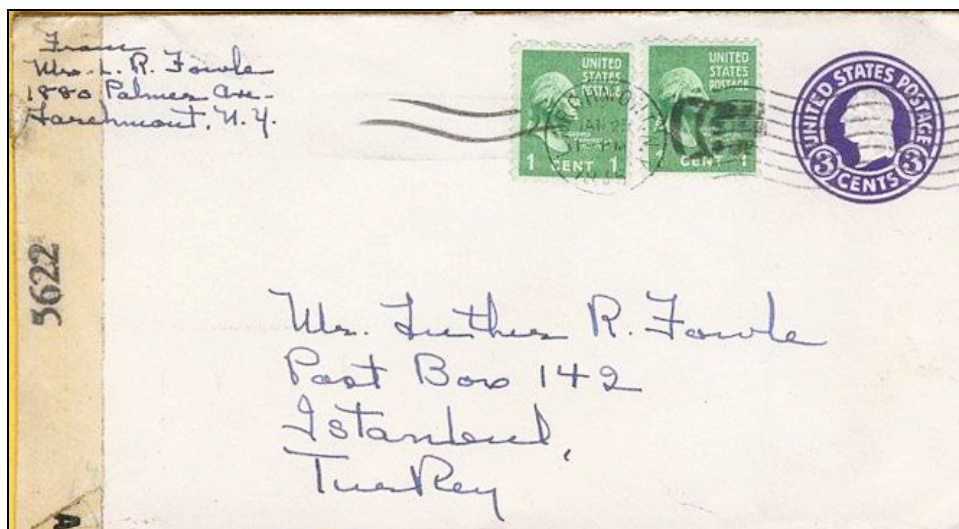 From
Mrs. L. R. Fowle
1880 Palmer Ave.
Larchmont, N.Y.
UNITED
STATES
POSTAGE
1 CENT 1
UNITED
STATES
POSTAGE
1 CENT 1
UNITED STATES POSTAGE
3 CENTS 3
5622
Mr. Luther R. Fowle
Post Box 142
Istanbul,
Turkey